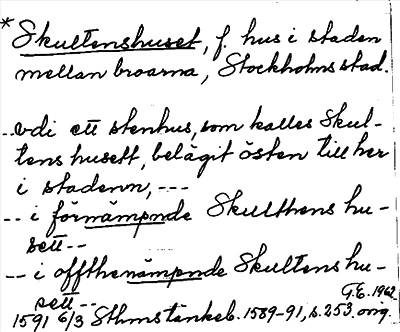 * Skultenshuset, f. hus i staden
mellan broarna, Stockholms stad.
..vdi ett stenhus, som kalles Skul-
tens husett, belägit östen till her
i stadenn, ---
-- i förnämpnde Skulthens hu-
sett --
-- i offthenämpnde Skultens hu-
sett --
G.E. 1962
1591 6/3 Sthms tänkeb. 1589-91, s. 253. orig.